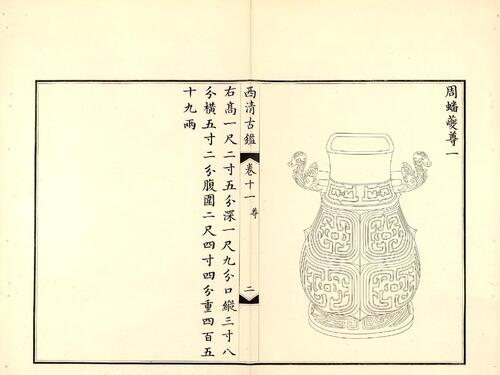 周蟠夔尊一
西清古鑑
卷十一
尊
二
右高一尺二寸五分深一尺九分口縱三寸八
分橫五寸二分腹圍二尺四寸四分重四百五
十九兩